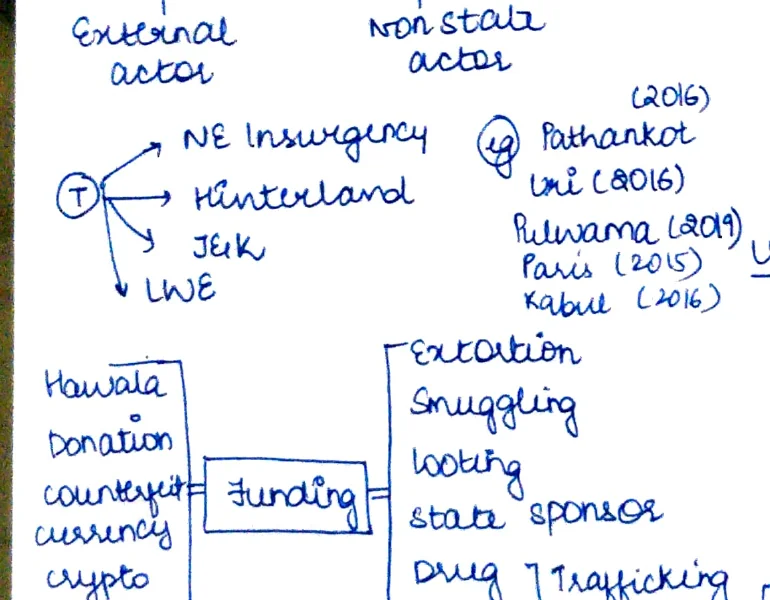 External
actor
Non state
actor
T
NE Insurgency
Hinterland
J&K
LWE
eg
(2016)
Pathankot
Uri (2016)
Pulwama (2019)
Paris (2015)
Kabul (2016)
Hawala
Donation
counterfeit
currency
crypto
Funding
Extortion
Smuggling
Looting
state sponsor
Drug Trafficking